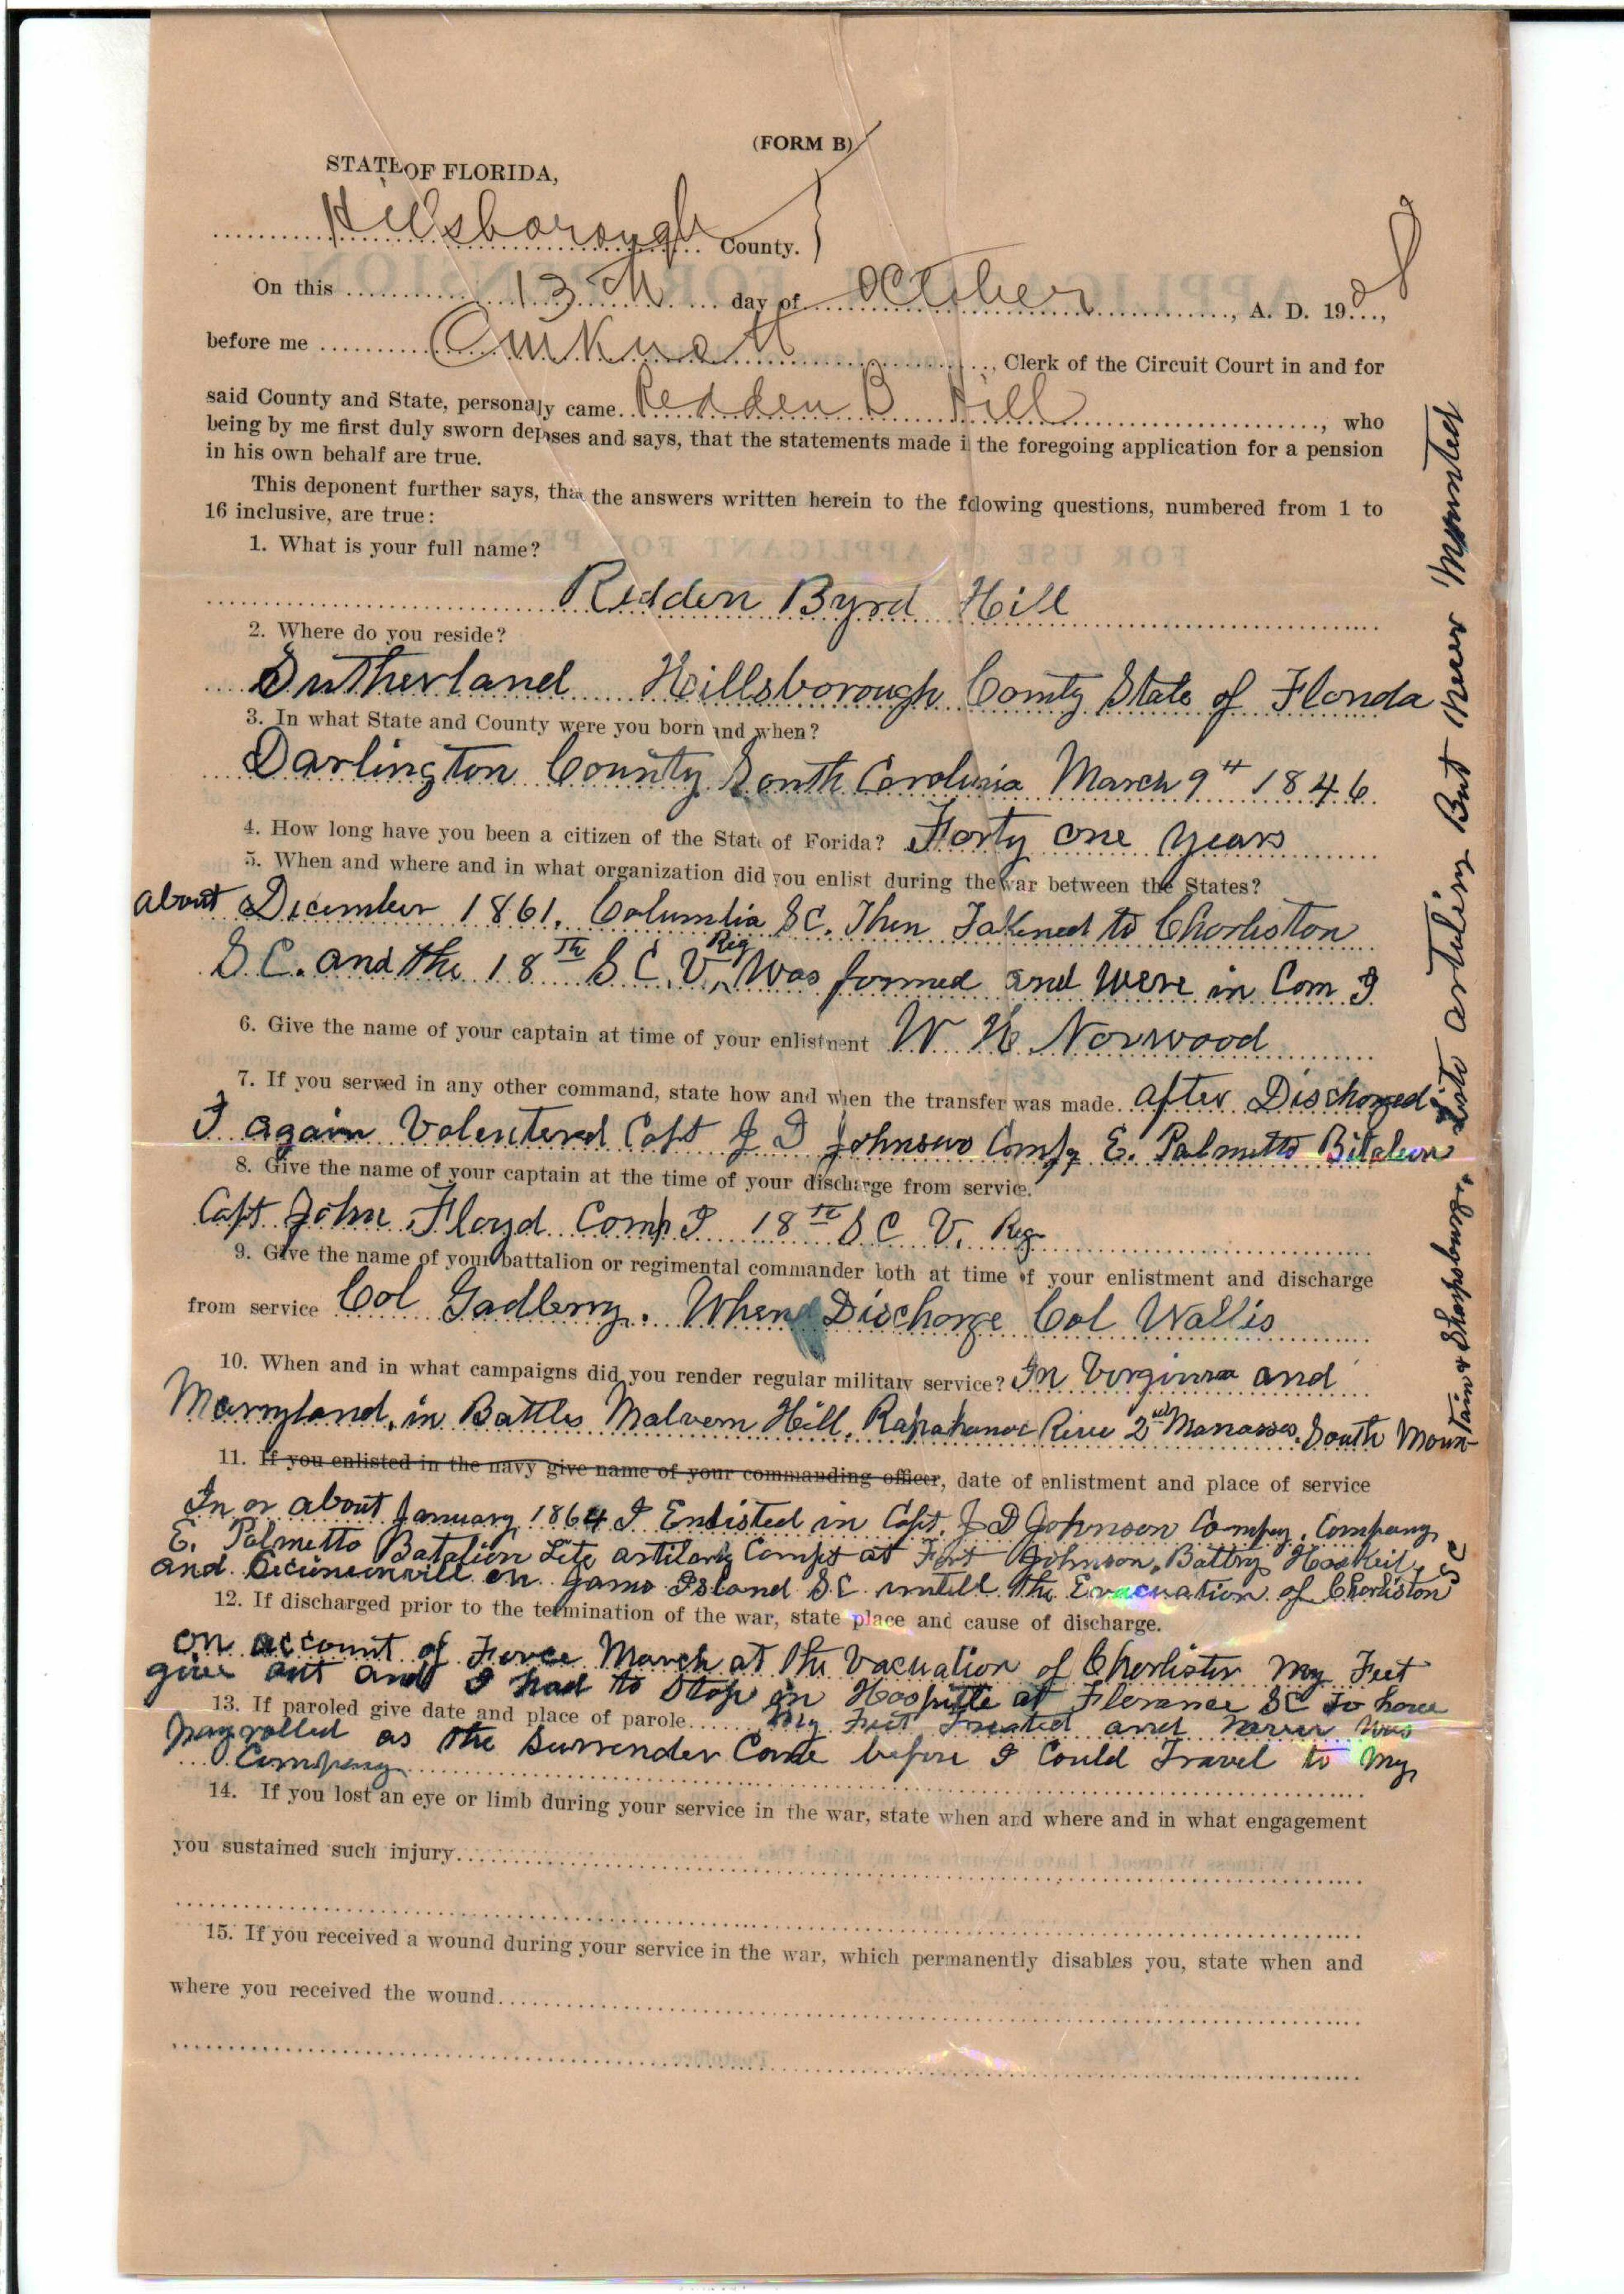 (FORM B)
STATE OF FLORIDA,
Hillsborough County.
On this 13th day of October, A. D. 190
before me Knott, Clerk of the Circuit Court in and for
said County and State, personaly came Redden B Hill, who
being by me first duly sworn deposes and says, that the statements made i the foregoing application for a pension
in his own behalf are true.
This deponent further says, that the answers written herein to the fdowing questions, numbered from 1 to
16 inclusive, are true:
1. What is your full name?
Redden Byrd Hill
2. Where do you reside?
Sutherland Hillsborough County State of Florida
3. In what State and County were you born and when?
Darlington County South Carolina March 9th 1846
4. How long have you been a citizen of the State of Forida? Forty one years
5. When and where and in what organization did you enlist during the war between the States?
about December 1861, Columbia SC. Then Takened to Charleston
S.C. and the 18th S C. V. Reg was formed and were in Com I
6. Give the name of your captain at time of your enlistment W H Norwood
7. If you served in any other command, state how and when the transfer was made. after Discharged
I again Volentered Capt J D Johnson Comp E. Palmetto Batalion
Lite artilery But never Mounted
8. Give the name of your captain at the time of your discharge from service.
Capt John Floyd Comp I 18th S C V. Reg
9. Give the name of your battalion or regimental commander both at time of your enlistment and discharge
from service Col Gadberry. When Discharge Col Wallis
10. When and in what campaigns did you render regular military service? In Virginia and
Maryland, in Battles Malvern Hill, Rapahanoc River 2nd Manassas, South Moun-
tain & Sharpsburg.
11. If you enlisted in the navy give name of your commanding officer, date of enlistment and place of service
In or about January 1864 I Enlisted in Capt. J D Johnson Compny. Company
E. Palmetto Batalion Lite artilary Compt at Fort Johnson, Battry Haskeil,
and on James Island SC untill the Evacuation of Charliston SC
12. If discharged prior to the termination of the war, state place and cause of discharge.
on account of Force March at the Vacuation of Charlister My Feet
give out and I had to stop in Hospittle at Florance SC To have
13. If paroled give date and place of parole My Feet Treated and never was
payrolled as the Surrender Came before I Could Travel to My
Company
14. If you lost an eye or limb during your service in the war, state when and where and in what engagement
you sustained such injury
15. If you received a wound during your service in the war, which permanently disables you, state when and
where you received the wound